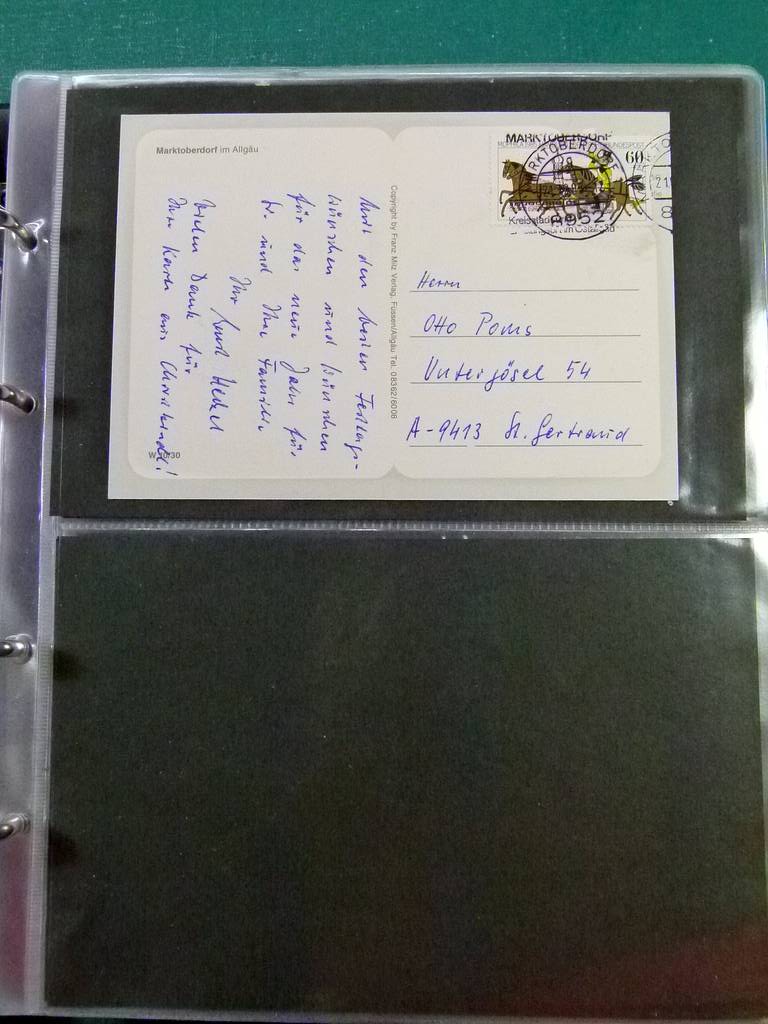 Marktoberdorf im Allgäu
Mit den besten Festtags-
wünschen und Wünschen
für das neue Jahr für
Sie und Ihre Familie
Ihr
Vielen Dank für
Ihre Karte aus
W 10/30
Copyright by Franz Milz Verlag, Füssen/Allgäu Tel. 08362/6008
MARKTOBERDORF
60
MARKTOBERDORF
8952
Herrn
Otto Poms
Unterjösel 54
A-9413 St. Gertraud